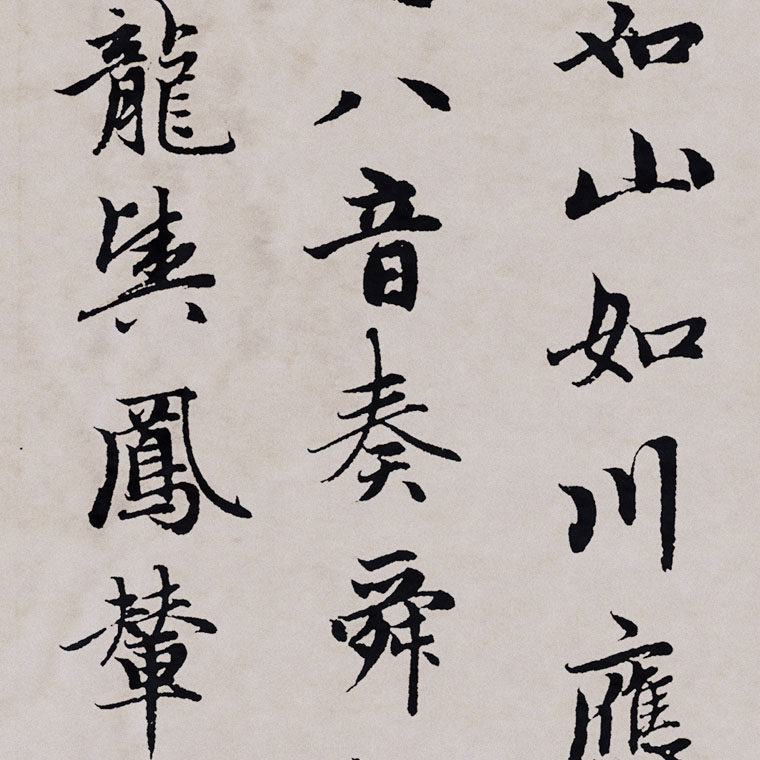 如山如川應
八音奏舜
龍輿鳳輦